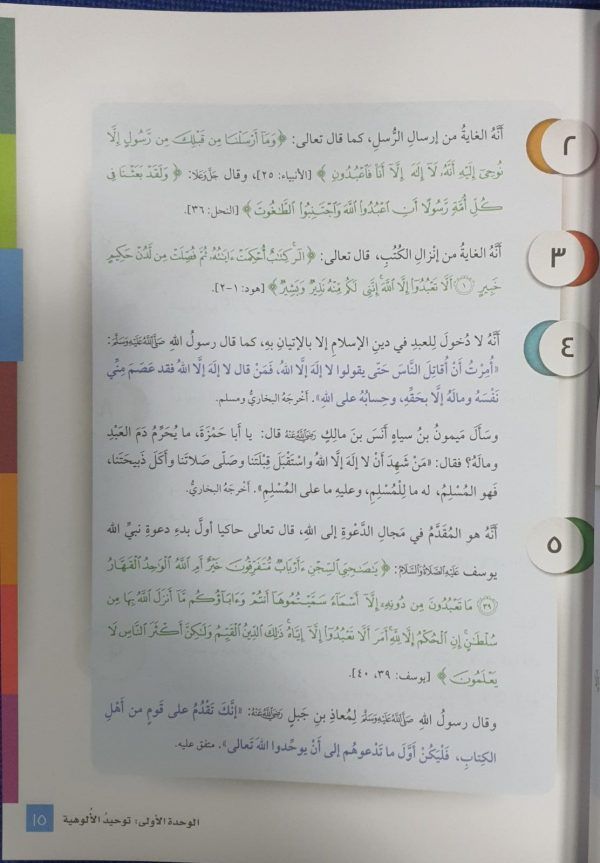 ٢
أَنَّهُ الغايةُ من إرسالِ الرُّسلِ، كما قال تعالى: ﴿وَمَآ أَرْسَلْنَا مِن قَبْلِكَ مِن رَّسُولٍ إِلَّا
نُوحِىٓ إِلَيْهِ أَنَّهُۥ لَآ إِلَٰهَ إِلَّآ أَنَا۠ فَٱعْبُدُونِ﴾ [الأنبياء: ٢٥]، وقال جَلَّ وَعَلَا: ﴿وَلَقَدْ بَعَثْنَا فِى
كُلِّ أُمَّةٍ رَّسُولًا أَنِ ٱعْبُدُوا۟ ٱللَّهَ وَٱجْتَنِبُوا۟ ٱلطَّٰغُوتَ﴾ [النحل: ٣٦].
٣
أَنَّهُ الغايةُ من إنْزالِ الكُتُبِ، قال تعالى: ﴿الٓر كِتَٰبٌ أُحْكِمَتْ ءَايَٰتُهُۥ ثُمَّ فُصِّلَتْ مِن لَّدُنْ حَكِيمٍ
خَبِيرٍ ١ أَلَّا تَعْبُدُوٓا۟ إِلَّا ٱللَّهَ إِنَّنِى لَكُم مِّنْهُ نَذِيرٌ وَبَشِيرٌ﴾ [هود: ١-٢].
٤
أَنَّهُ لا دُخولَ لِلعبدِ في دينِ الإسلامِ إلا بالإتيانِ بِهِ، كما قال رسولُ اللهِ ﷺ:
«أُمِرْتُ أَنْ أُقاتِلَ النَّاسَ حَتَّى يقولوا لا إِلهَ إِلَّا اللهُ، فَمَنْ قال لا إِلهَ إِلَّا اللهُ فقد عَصَمَ مِنِّي
نَفْسَهُ ومالَهُ إلَّا بحَقِّهِ، وحِسابُهُ على اللهِ». أخرجَهُ البخاريُّ ومسلم.
وسأَلَ مَيمونُ بنُ سياهٍ أَنَسَ بنَ مالِكٍ رَضِيَ اللَّهُ عَنْهُ قال: يا أبا حَمْزَةَ، ما يُحَرِّمُ دَمَ العَبْدِ
ومالَهُ؟ فقال: «مَنْ شَهِدَ أَنْ لا إِلهَ إِلَّا اللهُ واسْتَقْبَلَ قِبْلَتَنا وصَلَّى صَلاتَنا وأكَلَ ذَبيحَتَنا،
فَهو المُسْلِمُ، له ما لِلْمُسْلِمِ، وعليهِ ما على المُسْلِمِ». أخرجَهُ البخاريُّ.
٥
أَنَّهُ هو المُقَدَّمُ في مَجالِ الدَّعْوةِ إلى اللهِ، قال تعالى حاكيا أولَ بدءِ دعوةِ نبيِّ الله
يوسف عَلَيْهِ الصَّلَاةُ وَالسَّلَامُ: ﴿يَٰصَٰحِبَىِ ٱلسِّجْنِ ءَأَرْبَابٌ مُّتَفَرِّقُونَ خَيْرٌ أَمِ ٱللَّهُ ٱلْوَٰحِدُ ٱلْقَهَّارُ
٣٩ مَا تَعْبُدُونَ مِن دُونِهِۦٓ إِلَّآ أَسْمَآءً سَمَّيْتُمُوهَآ أَنتُمْ وَءَابَآؤُكُم مَّآ أَنزَلَ ٱللَّهُ بِهَا مِن
سُلْطَٰنٍ إِنِ ٱلْحُكْمُ إِلَّا لِلَّهِ أَمَرَ أَلَّا تَعْبُدُوٓا۟ إِلَّآ إِيَّاهُ ذَٰلِكَ ٱلدِّينُ ٱلْقَيِّمُ وَلَٰكِنَّ أَكْثَرَ ٱلنَّاسِ لَا
يَعْلَمُونَ﴾ [يوسف: ٣٩، ٤٠].
وقال رسولُ اللهِ ﷺ لِمُعاذِ بنِ جَبلٍ رَضِيَ اللَّهُ عَنْهُ: «إِنَّكَ تَقْدُمُ على قَومٍ من أَهْلِ
الكِتابِ، فَلْيَكُنْ أَوَّلَ ما تَدْعوهُم إلى أَنْ يوحِّدوا اللهَ تَعالى». متفق عليه.
الوحدة الأولى: توحيدُ الأُلوهية ١٥